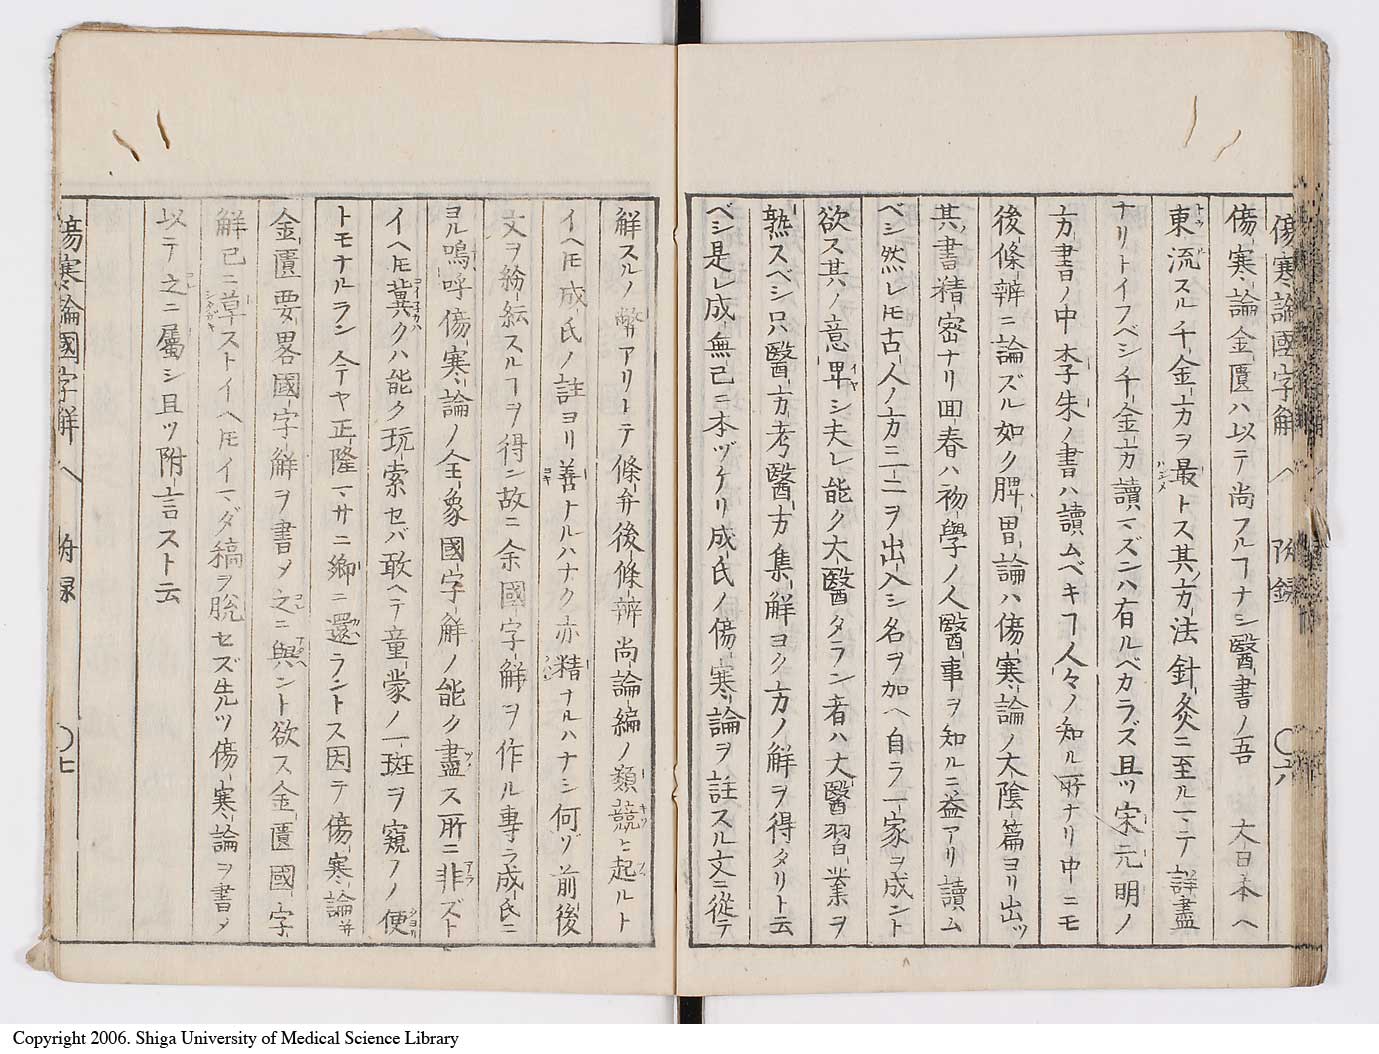 傷寒論國字解 ヘ 附録 〇六
傷寒論金匱ハ以テ尚フルヿナシ醫書ノ吾 大日本ヘ
東流スル千金方ヲ最トス其方法針灸ニ至ルマテ詳盡
ナリトイフベシ千金方讀マズンハ有ルベカラズ且ツ宋元明ノ
方書ノ中李朱ノ書ハ讀ムベキヿ人々ノ知ル所ナリ中ニモ
後條辨ニ論ズル如ク脾胃論ハ傷寒論ノ太陰篇ヨリ出ツ
其書精密ナリ回春ハ初學ノ人醫事ヲ知ルニ益アリ讀ム
ベシ然レ𪜈古人ノ方一二ヲ出入シ名ヲ加ヘ自ラ一家ヲ成ント
欲ス其ノ意卑シ夫レ能ク大醫タラン者ハ大醫習業ヲ
熟スベシ只醫方考醫方集解ヨク方ノ解ヲ得タリト云
ベシ是レ成無己ニ本ヅケリ成氏ノ傷寒論ヲ註スル文ニ從テ
解スルノ弊アリトテ條弁後條辨尚論編ノ類競ヒ起ルト
イヘ𪜈成氏ノ註ヨリ善ナルハナク亦精ナルハナシ何ゾ前後
文ヲ紛紜スルヿヲ得ン故ニ余國字解ヲ作ル專ラ成氏ニ
ヨル嗚呼傷寒論ノ全象國字解ノ能ク盡ス所ニ非ズト
イヘ𪜈冀クハ能ク玩索セバ敢ヘテ童蒙ノ一斑ヲ窺フノ便
トモナルラン今ヤ正隆マサニ郷ニ還ラントス因テ傷寒論并
金匱要畧國字解ヲ書メ之ニ與ント欲ス金匱國字
解已ニ草ストイヘ𪜈イマダ稿ヲ脫セズ先ツ傷寒論ヲ書メ
以テ之ニ屬シ且ツ附言スト云
傷寒論國字解 ヘ 附録 〇七
Copyright 2006. Shiga University of Medical Science Library